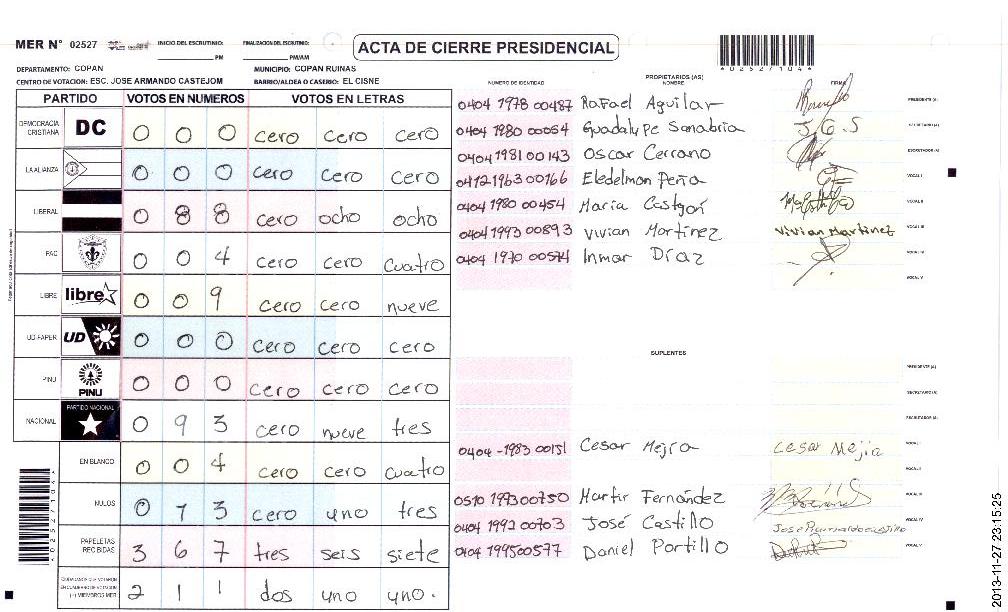 MER N° 02527 INICIO DEL ESCRUTINIO: PM FINALIZACION DEL ESCRUTINIO: PM/AM ACTA DE CIERRE PRESIDENCIAL
*025271044*
DEPARTAMENTO: COPAN MUNICIPIO: COPAN RUINAS
CENTRO DE VOTACION: ESC. JOSE ARMANDO CASTEJOM BARRIO/ALDEA O CASERIO: EL CISNE
PARTIDO VOTOS EN NUMEROS VOTOS EN LETRAS
DEMOCRACIA CRISTIANA DC 0 0 0 cero cero cero
LA ALIANZA 0 0 0 cero cero cero
LIBERAL 0 8 8 cero ocho ocho
PAC 0 0 4 cero cero cuatro
LIBRE libre 0 0 9 cero cero nueve
UD-FAPER UD 0 0 0 cero cero cero
PINU PINU 0 0 0 cero cero cero
NACIONAL PARTIDO NACIONAL 0 9 3 cero nueve tres
EN BLANCO 0 0 4 cero cero cuatro
NULOS 0 1 3 cero uno tres
PAPELETAS RECIBIDAS 3 6 7 tres seis siete
CIUDADANOS QUE VOTARON EN CUADERNO DE VOTACION (+) MIEMBROS MER 2 1 1 dos uno uno.
PROPIETARIOS (AS)
NUMERO DE IDENTIDAD NOMBRE FIRMA
0404 1978 00487 Rafael Aguilar PRESIDENTE (A)
0404 1980 00054 Guadalupe Sanabria J.G.S SECRETARIO (A)
0404 1981 00143 Oscar Cerrano ESCRUTADOR (A)
0412 1963 00166 Eledelmon Peña VOCAL I
0404 1980 00454 Maria Castgon VOCAL II
0404 1993 00893 Vivian Martinez Vivian Martinez VOCAL III
0404 1970 00574 Inmar Díaz VOCAL IV
VOCAL V
SUPLENTES
PRESIDENTE (A)
SECRETARIO (A)
ESCRUTADOR (A)
0404-1983 00151 Cesar Mejia Cesar Mejia VOCAL I
VOCAL II
0510 1973 00750 Martir Fernández VOCAL III
0404 1992 00703 José Castillo VOCAL IV
0404 1995 00577 Daniel Portillo VOCAL V
*025271044*
2013-11-27 23:15:25